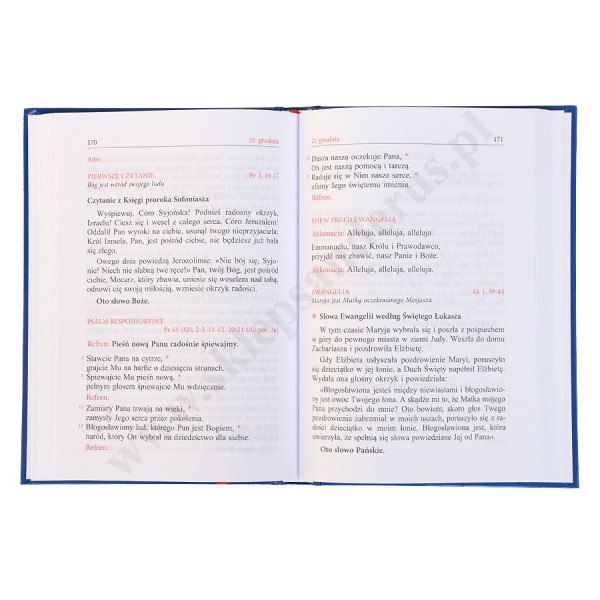 170
21 grudnia
Albo:
PIERWSZE CZYTANIE
So 3, 14-17
Bóg jest wśród swojego ludu
Czytanie z Księgi proroka Sofoniasza
Wyśpiewuj, Córo Syjońska! Podnieś radosny okrzyk,
Izraelu! Ciesz się i wesel z całego serca, Córo Jeruzalem!
Oddalił Pan wyroki na ciebie, usunął twego nieprzyjaciela;
Król Izraela, Pan, jest pośród ciebie, nie będziesz już bała
się złego.
Owego dnia powiedzą Jerozolimie: «Nie bój się, Syjo-
nie! Niech nie słabną twe ręce!» Pan, twój Bóg, jest pośród
ciebie, Mocarz, który zbawia, uniesie się weselem nad tobą,
odnowi cię swoją miłością, wzniesie okrzyk radości.
Oto słowo Boże.
PSALM RESPONSORYJNY
Ps 33 (32), 2-3. 11-12. 20-21 (R.: por. 3a)
Refren: Pieśń nową Panu radośnie śpiewajmy.
2 Sławcie Pana na cytrze, *
grajcie Mu na harfie o dziesięciu strunach.
3 Śpiewajcie Mu pieśń nową, *
pełnym głosem śpiewajcie Mu wdzięcznie.
Refren.
11 Zamiary Pana trwają na wieki, *
zamysły Jego serca przez pokolenia.
12 Błogosławiony lud, którego Pan jest Bogiem, *
naród, który On wybrał na dziedzictwo dla siebie.
Refren.
21 grudnia
171
Dusza nasza oczekuje Pana, *
On jest naszą pomocą i tarczą.
Raduje się w Nim nasze serce, *
ufamy Jego świętemu imieniu.
Refren.
ŚPIEW PRZED EWANGELIĄ
Aklamacja: Alleluja, alleluja, alleluja.
Emmanuelu, nasz Królu i Prawodawco,
przyjdź nas zbawić, nasz Panie i Boże.
Aklamacja: Alleluja, alleluja, alleluja.
EWANGELIA
Łk 1, 39-45
Maryja jest Matką oczekiwanego Mesjasza
Słowa Ewangelii według Świętego Łukasza
W tym czasie Maryja wybrała się i poszła z pośpiechem
w góry do pewnego miasta w ziemi Judy. Weszła do domu
Zachariasza i pozdrowiła Elżbietę.
Gdy Elżbieta usłyszała pozdrowienie Maryi, poruszyło
się dzieciątko w jej łonie, a Duch Święty napełnił Elżbietę.
Wydała ona głośny okrzyk i powiedziała:
«Błogosławiona jesteś między niewiastami i błogosławio-
ny jest owoc Twojego łona. A skądże mi to, że Matka mojego
Pana przychodzi do mnie? Oto bowiem, skoro głos Twego
pozdrowienia zabrzmiał w moich uszach, poruszyło się z ra-
dości dzieciątko w moim łonie. Błogosławiona jest, która
uwierzyła, że spełnią się słowa powiedziane Jej od Pana».
Oto słowo Pańskie.